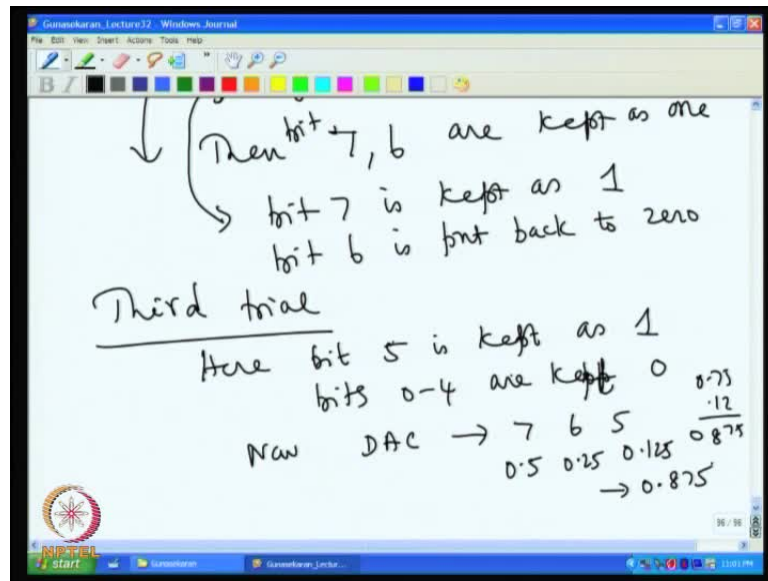 Gunasekaran_Lecture32 - Windows Journal
File Edit View Insert Actions Tools Help
B I
Then bit 7, 6 are kept as one
bit 7 is kept as 1
bit 6 is put back to zero
Third trial
Here bit 5 is kept as 1
bits 0-4 are kept 0
0.75
.12
0875
Now DAC → 7 6 5
0.5 0.25 0.125
→ 0.875
96 / 96
NPTEL
start Gunasekaran Gunasekaran_Lectur... 11:03 PM